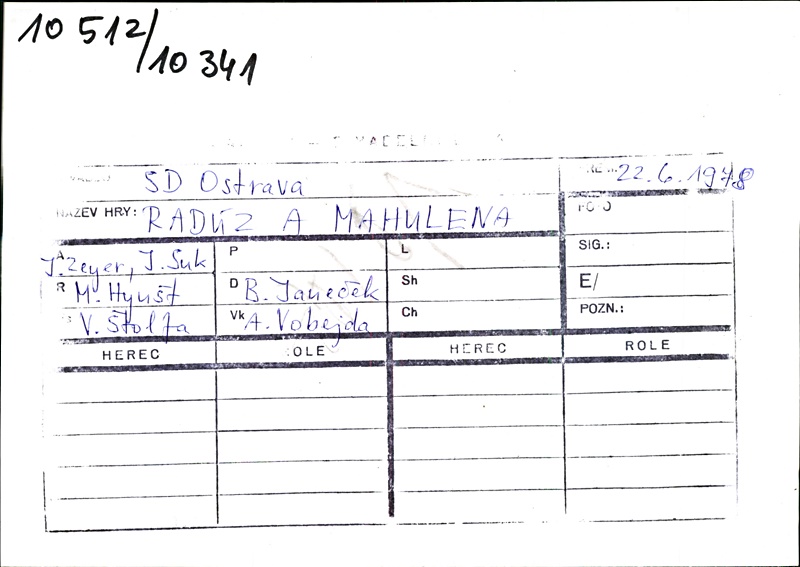 10 512/
10 341
SD Ostrava 22.6.1978
NÁZEV HRY: RADÚZ A MAHULENA
A J. Zeyer, J. Suk P L SIG.:
R M. Hynšt D B. Janeček Sh E/
V. Štolfa Vk A. Vobejda Ch POZN.:
HEREC ROLE HEREC ROLE